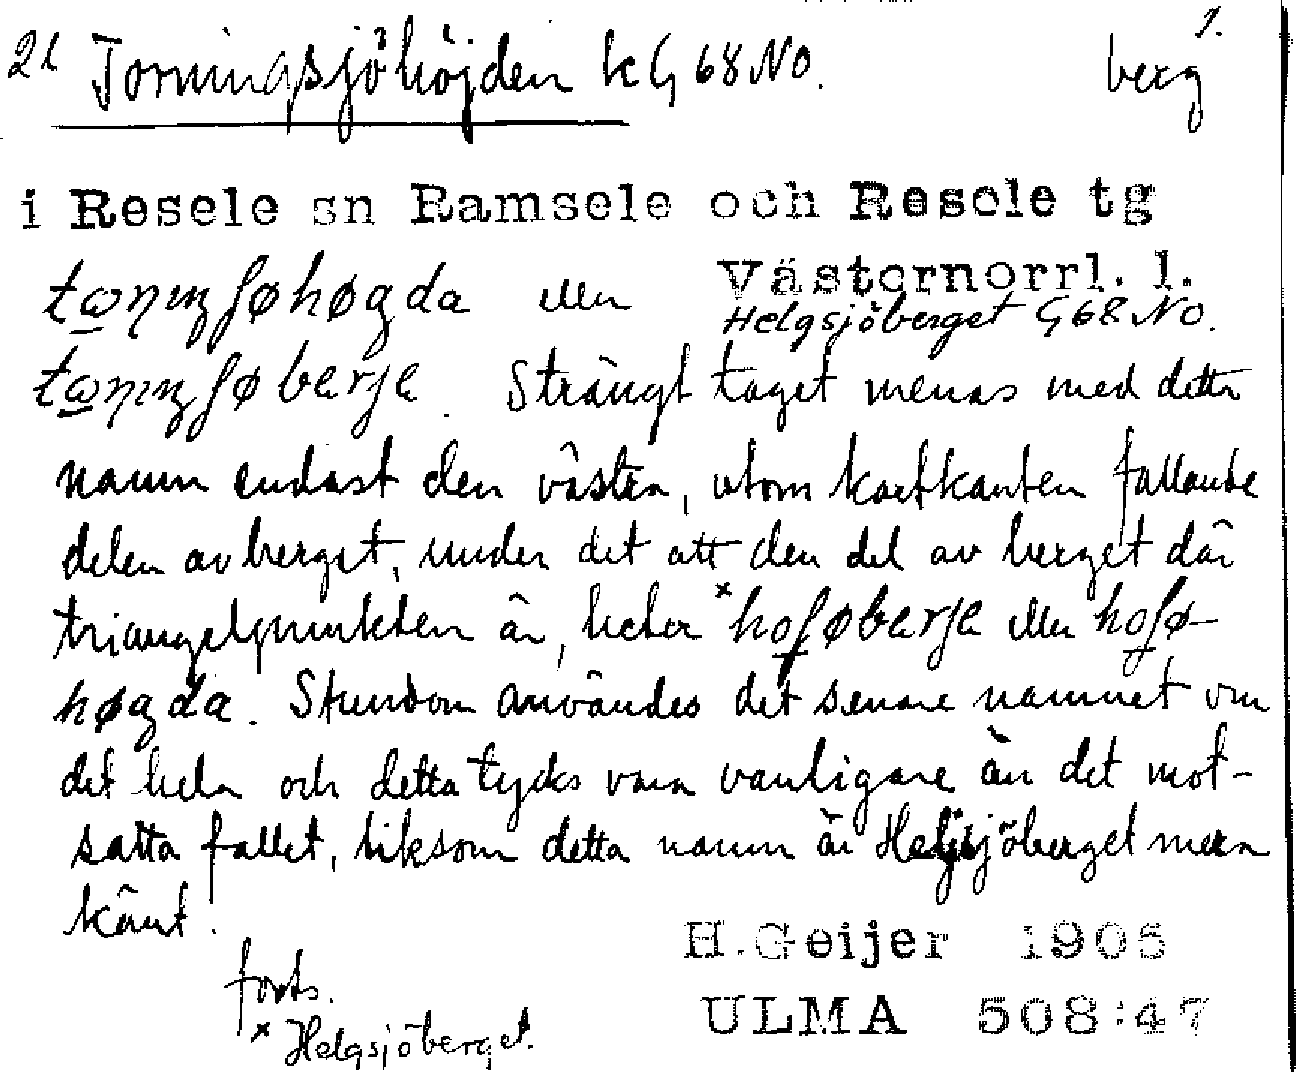 21 Torningsjöhöjden k G 68 NO. berg 1.
i Resele sn Ramsele och Resele tg
Västernorrl. l.
taṉiŋʃøhøgda eller Helgsjöberget G 68 NO.
taṉiŋʃøbærje. Strängt taget menas med detta
namn endast den västra, utom kartkanten fallande
delen av berget, under det att den del av berget där
triangelpunkten är, heter ×hoʃøbærje eller hoʃø-
høgda. Stundom användes det senare namnet om
det hela och detta tycks vara vanligare än det mot-
satta fallet, liksom detta namn är Helgsjöberget mera
känt.
H. Geijer 1905
forts.
ULMA 508:47
× Helgsjöberget.